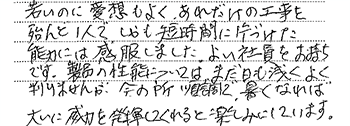 若いのに愛想もよく、あれだけの工事を
殆んど1人で、しかも短時間に片づけた
能力には感服しました。よい社員をお持ち
です。製品の性能については、まだ日も浅くよく
判りませんが、今の所順調で、暑くなれば
大いに威力を発揮してくれると楽しみにしています。